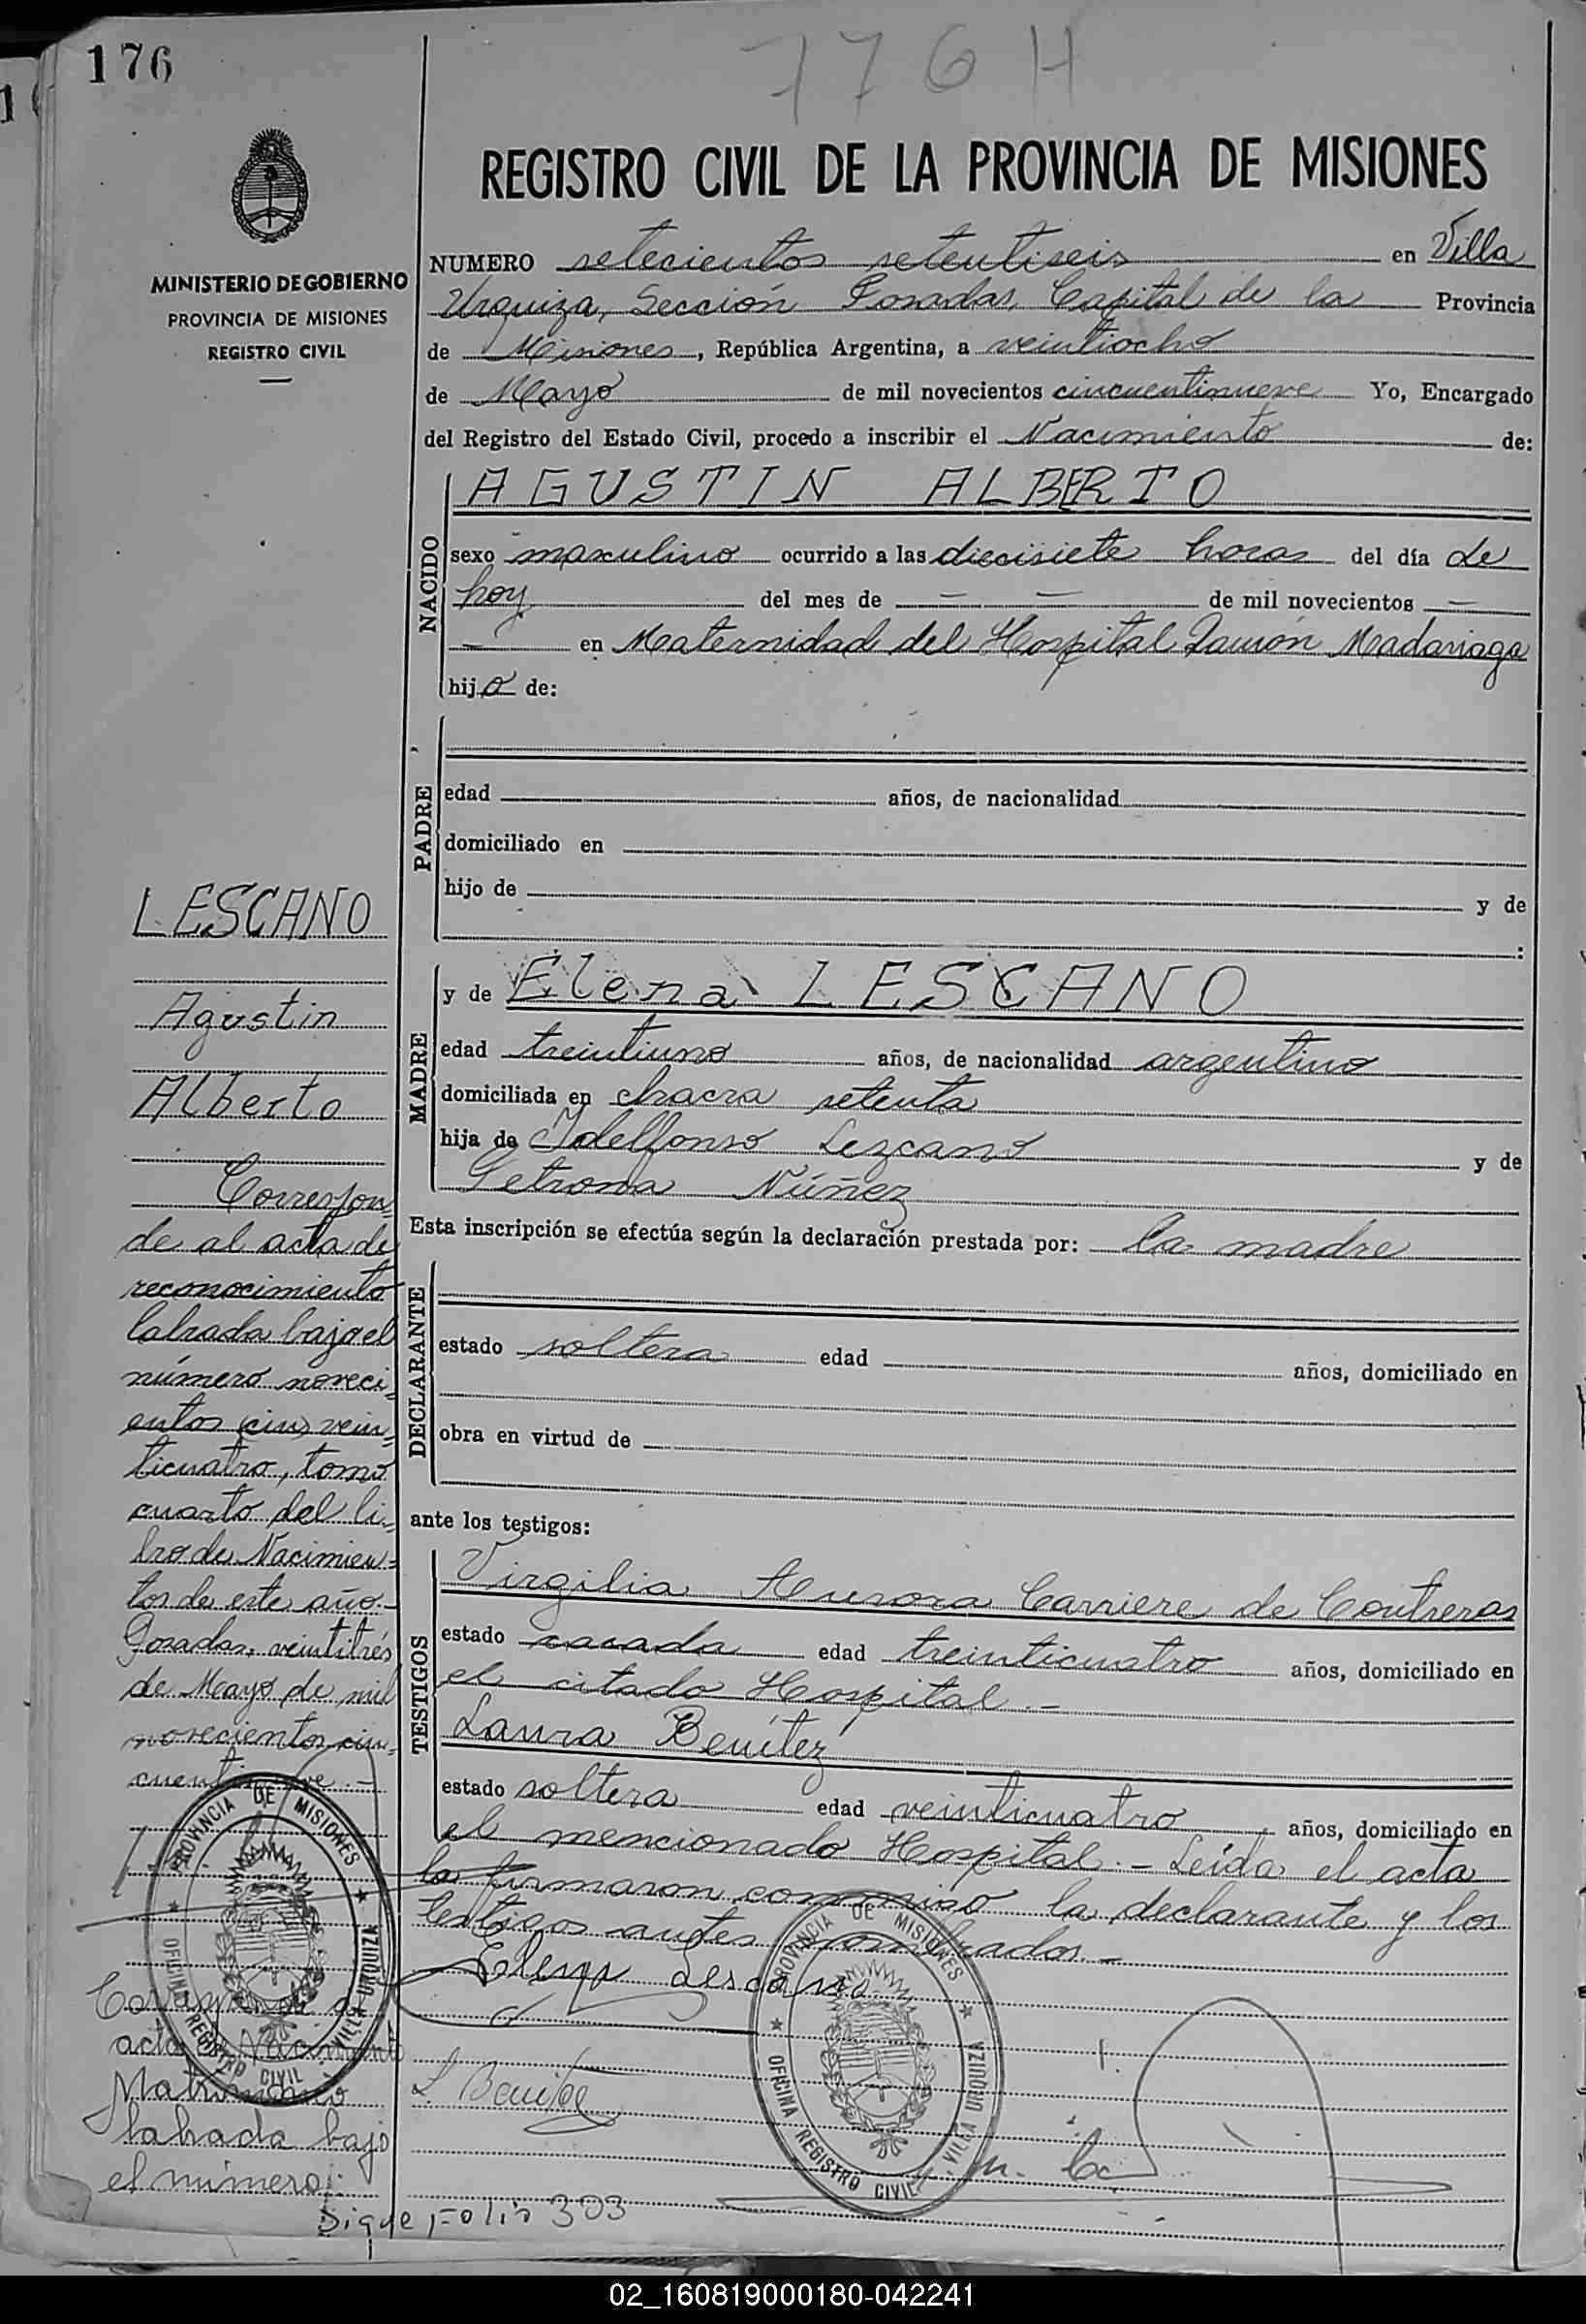 176
776 H
MINISTERIO DE GOBIERNO
PROVINCIA DE MISIONES
REGISTRO CIVIL
REGISTRO CIVIL DE LA PROVINCIA DE MISIONES
NUMERO setecientos setentiseis en Villa
Urquiza, Sección Posadas, Capital de la Provincia
de Misiones, República Argentina, a veintiocho
de Mayo de mil novecientos cincuentinueve Yo, Encargado
del Registro del Estado Civil, procedo a inscribir el Nacimiento de:
NACIDO
AGUSTIN ALBERTO
sexo masculino ocurrido a las diecisiete horas del día de
hoy del mes de — — de mil novecientos —
— en Maternidad del Hospital Ramón Madariaga
hijo de:
PADRE
edad años, de nacionalidad
domiciliado en
hijo de y de
:
MADRE
y de Elena LESCANO
edad treintiuno años, de nacionalidad argentino
domiciliada en chacra setenta
hija de Idelfonso Lezcano y de
Petrona Núñez
Esta inscripción se efectúa según la declaración prestada por: la madre
DECLARANTE
estado soltera edad años, domiciliado en
obra en virtud de
ante los testigos:
TESTIGOS
Virgilia Aurora Carriere de Contreras
estado casada edad treinticuatro años, domiciliado en
el citado Hospital.-
Laura Benítez
estado soltera edad veinticuatro años, domiciliado en
el mencionado Hospital.- Leída el acta
la firmaron conmigo la declarante y los
testigos antes nombrados.-
Elena Lescano
L Benitez
LESCANO
Agustin
Alberto
Correspon=
de al acta de
reconocimiento
labrada bajo el
número noveci=
entos vein=
ticuatro, tomo
cuarto del li=
bro de Nacimien=
tos de este año.-
Posadas, veintitrés
de Mayo de mil
novecientos cin=
cuentinueve.-
PROVINCIA DE MISIONES
OFICINA REGISTRO CIVIL VILLA URQUIZA
PROVINCIA DE MISIONES
OFICINA REGISTRO CIVIL - VILLA URQUIZA
acta Nacimiento
Matrimonio
labrada bajo
el número:
Sigue Folio 303
02_160819000180-042241